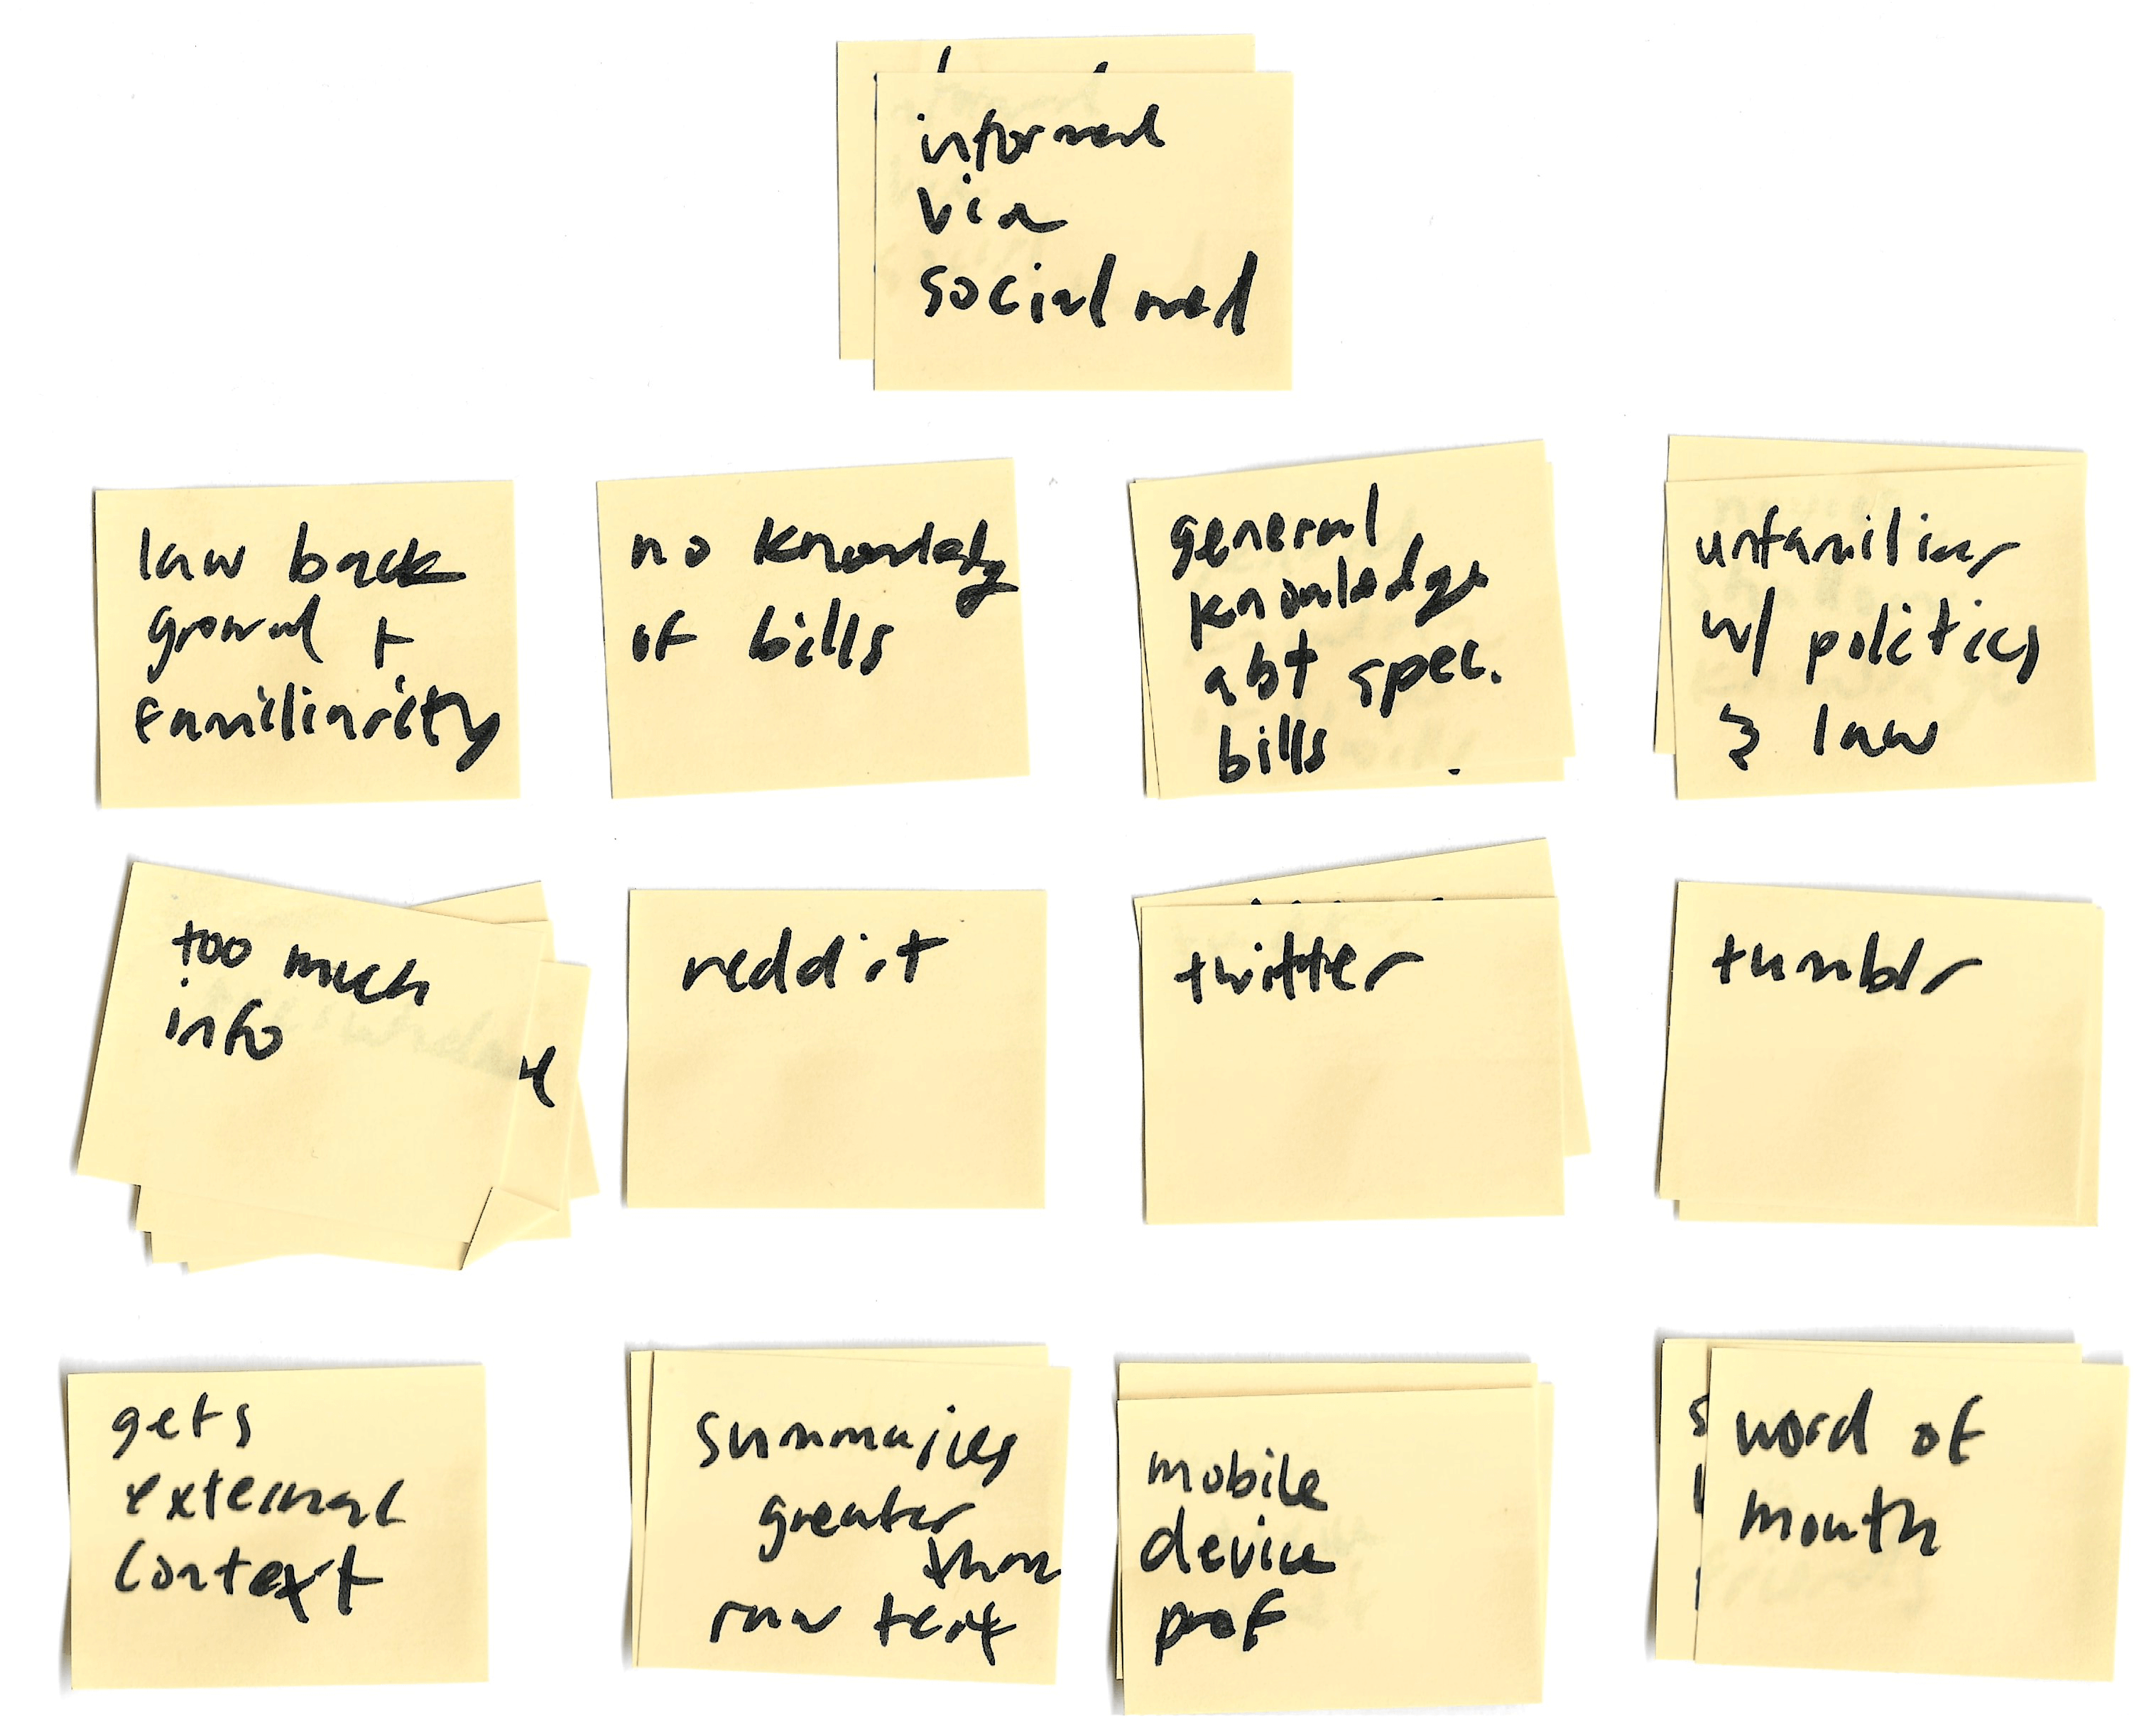 informed
via
social med
law back
ground +
familiarity
no knowledg
of bills
general
knowledge
abt spec.
bills
unfamiliar
w/ politics
& law
too much
info
reddit
twitter
tumblr
gets
external
context
summaries
greater
than
raw text
mobile
device
pref
word of
mouth